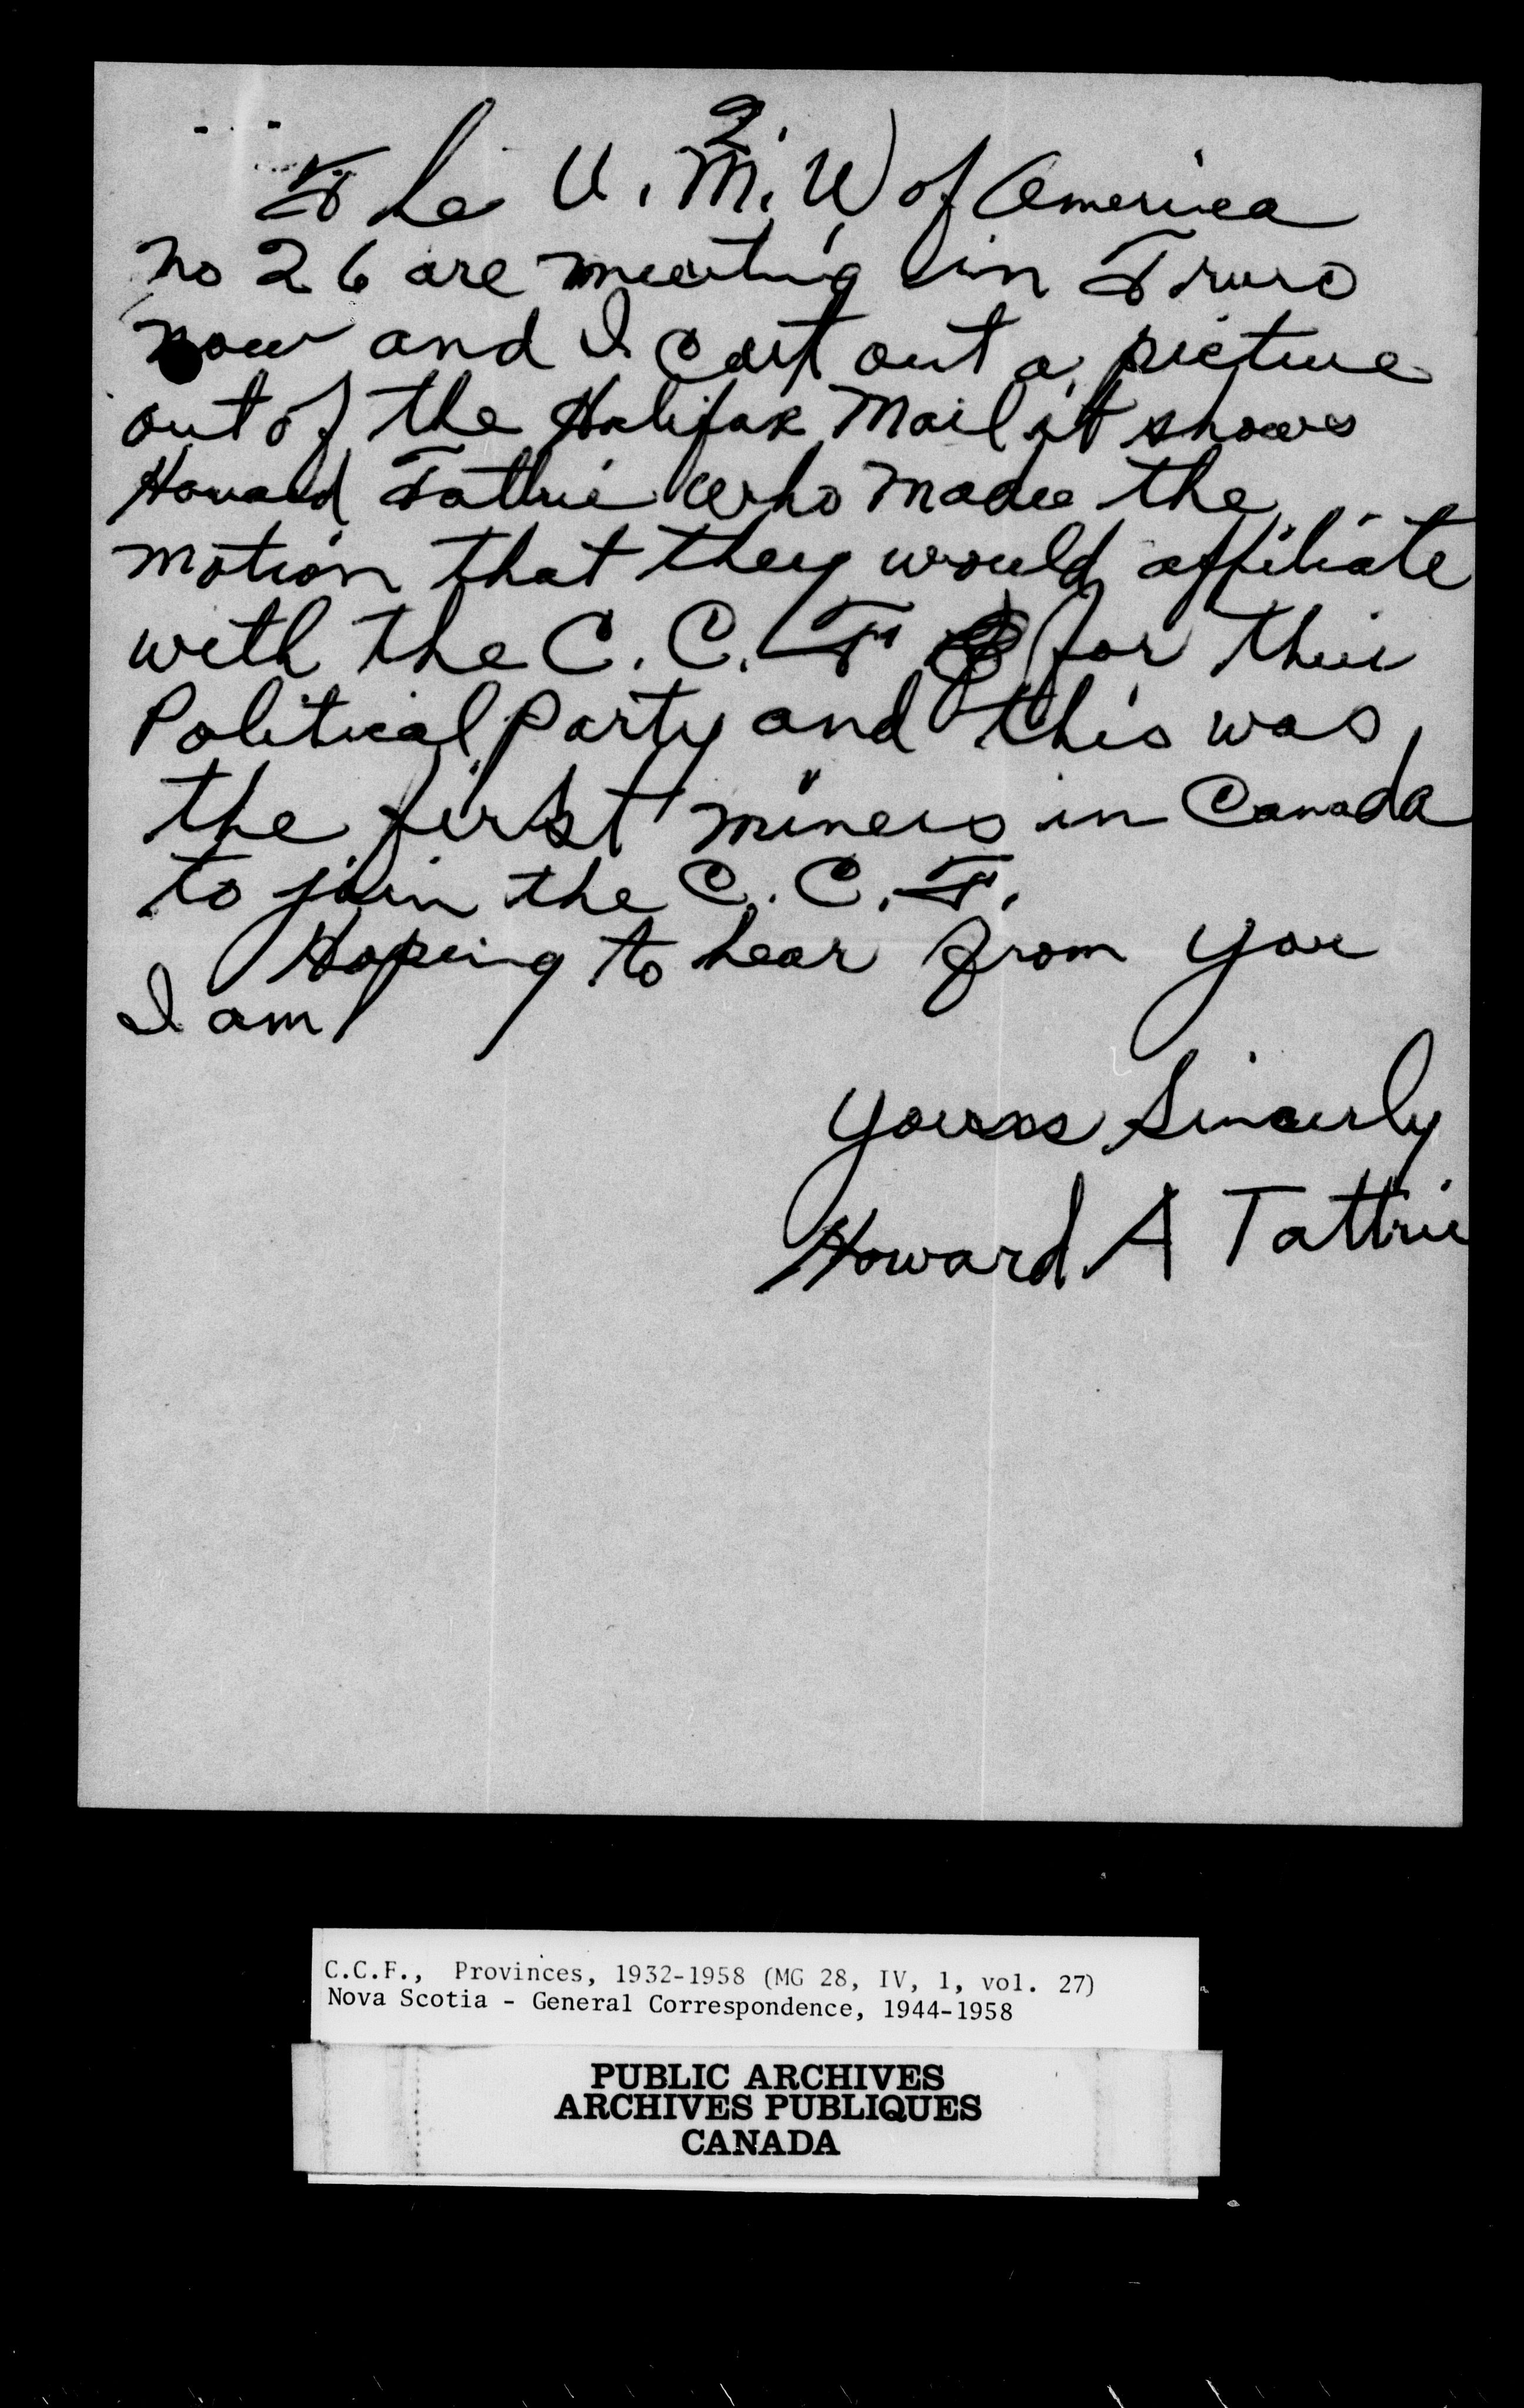 2.
The U. M. W of America
no 26 are meeting in Truro
now and I cut out a picture
out of the Halifax Mail it shows
Howard Tattrie who made the
motion that they would affiliate
with the C. C. F for their
Political Party and this was
the first miners in Canada
to join the C. C. F.
Hoping to hear from you
I am
Yours Sincerly
Howard A Tattrie
C.C.F., Provinces, 1932-1958 (MG 28, IV, 1, vol. 27)
Nova Scotia - General Correspondence, 1944-1958
PUBLIC ARCHIVES
ARCHIVES PUBLIQUES
CANADA